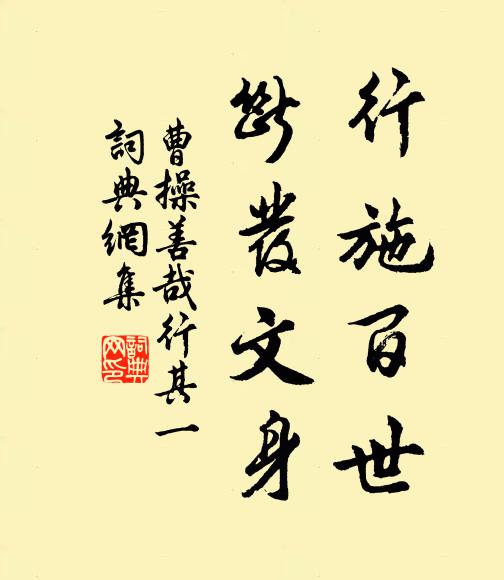 行施百世
斷發文身
曹操善哉行其一
詞典網集
詞典網印